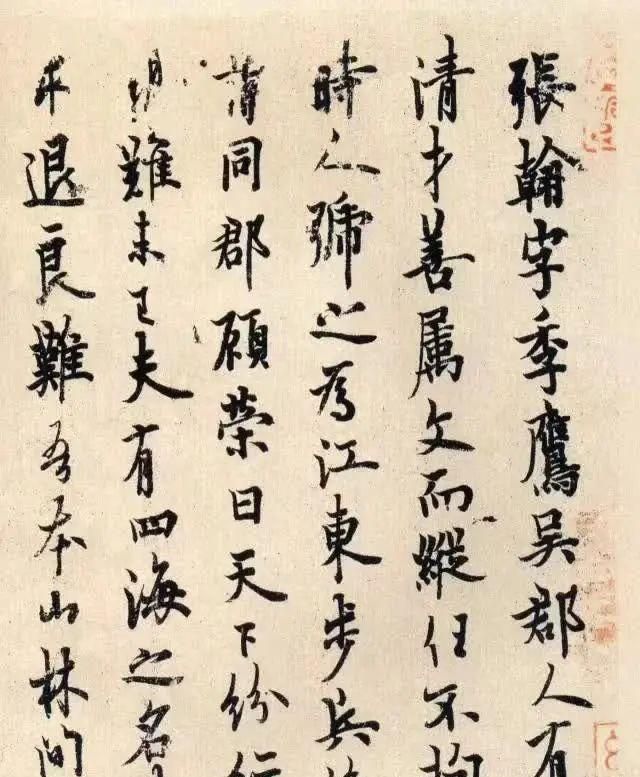 張翰字季鷹吳郡人有
清才善属文而縱任不拘
時人號之為江東步兵
謂同郡顧榮曰天下紛紜
難未已夫有四海之名
求退良難吾本山林間